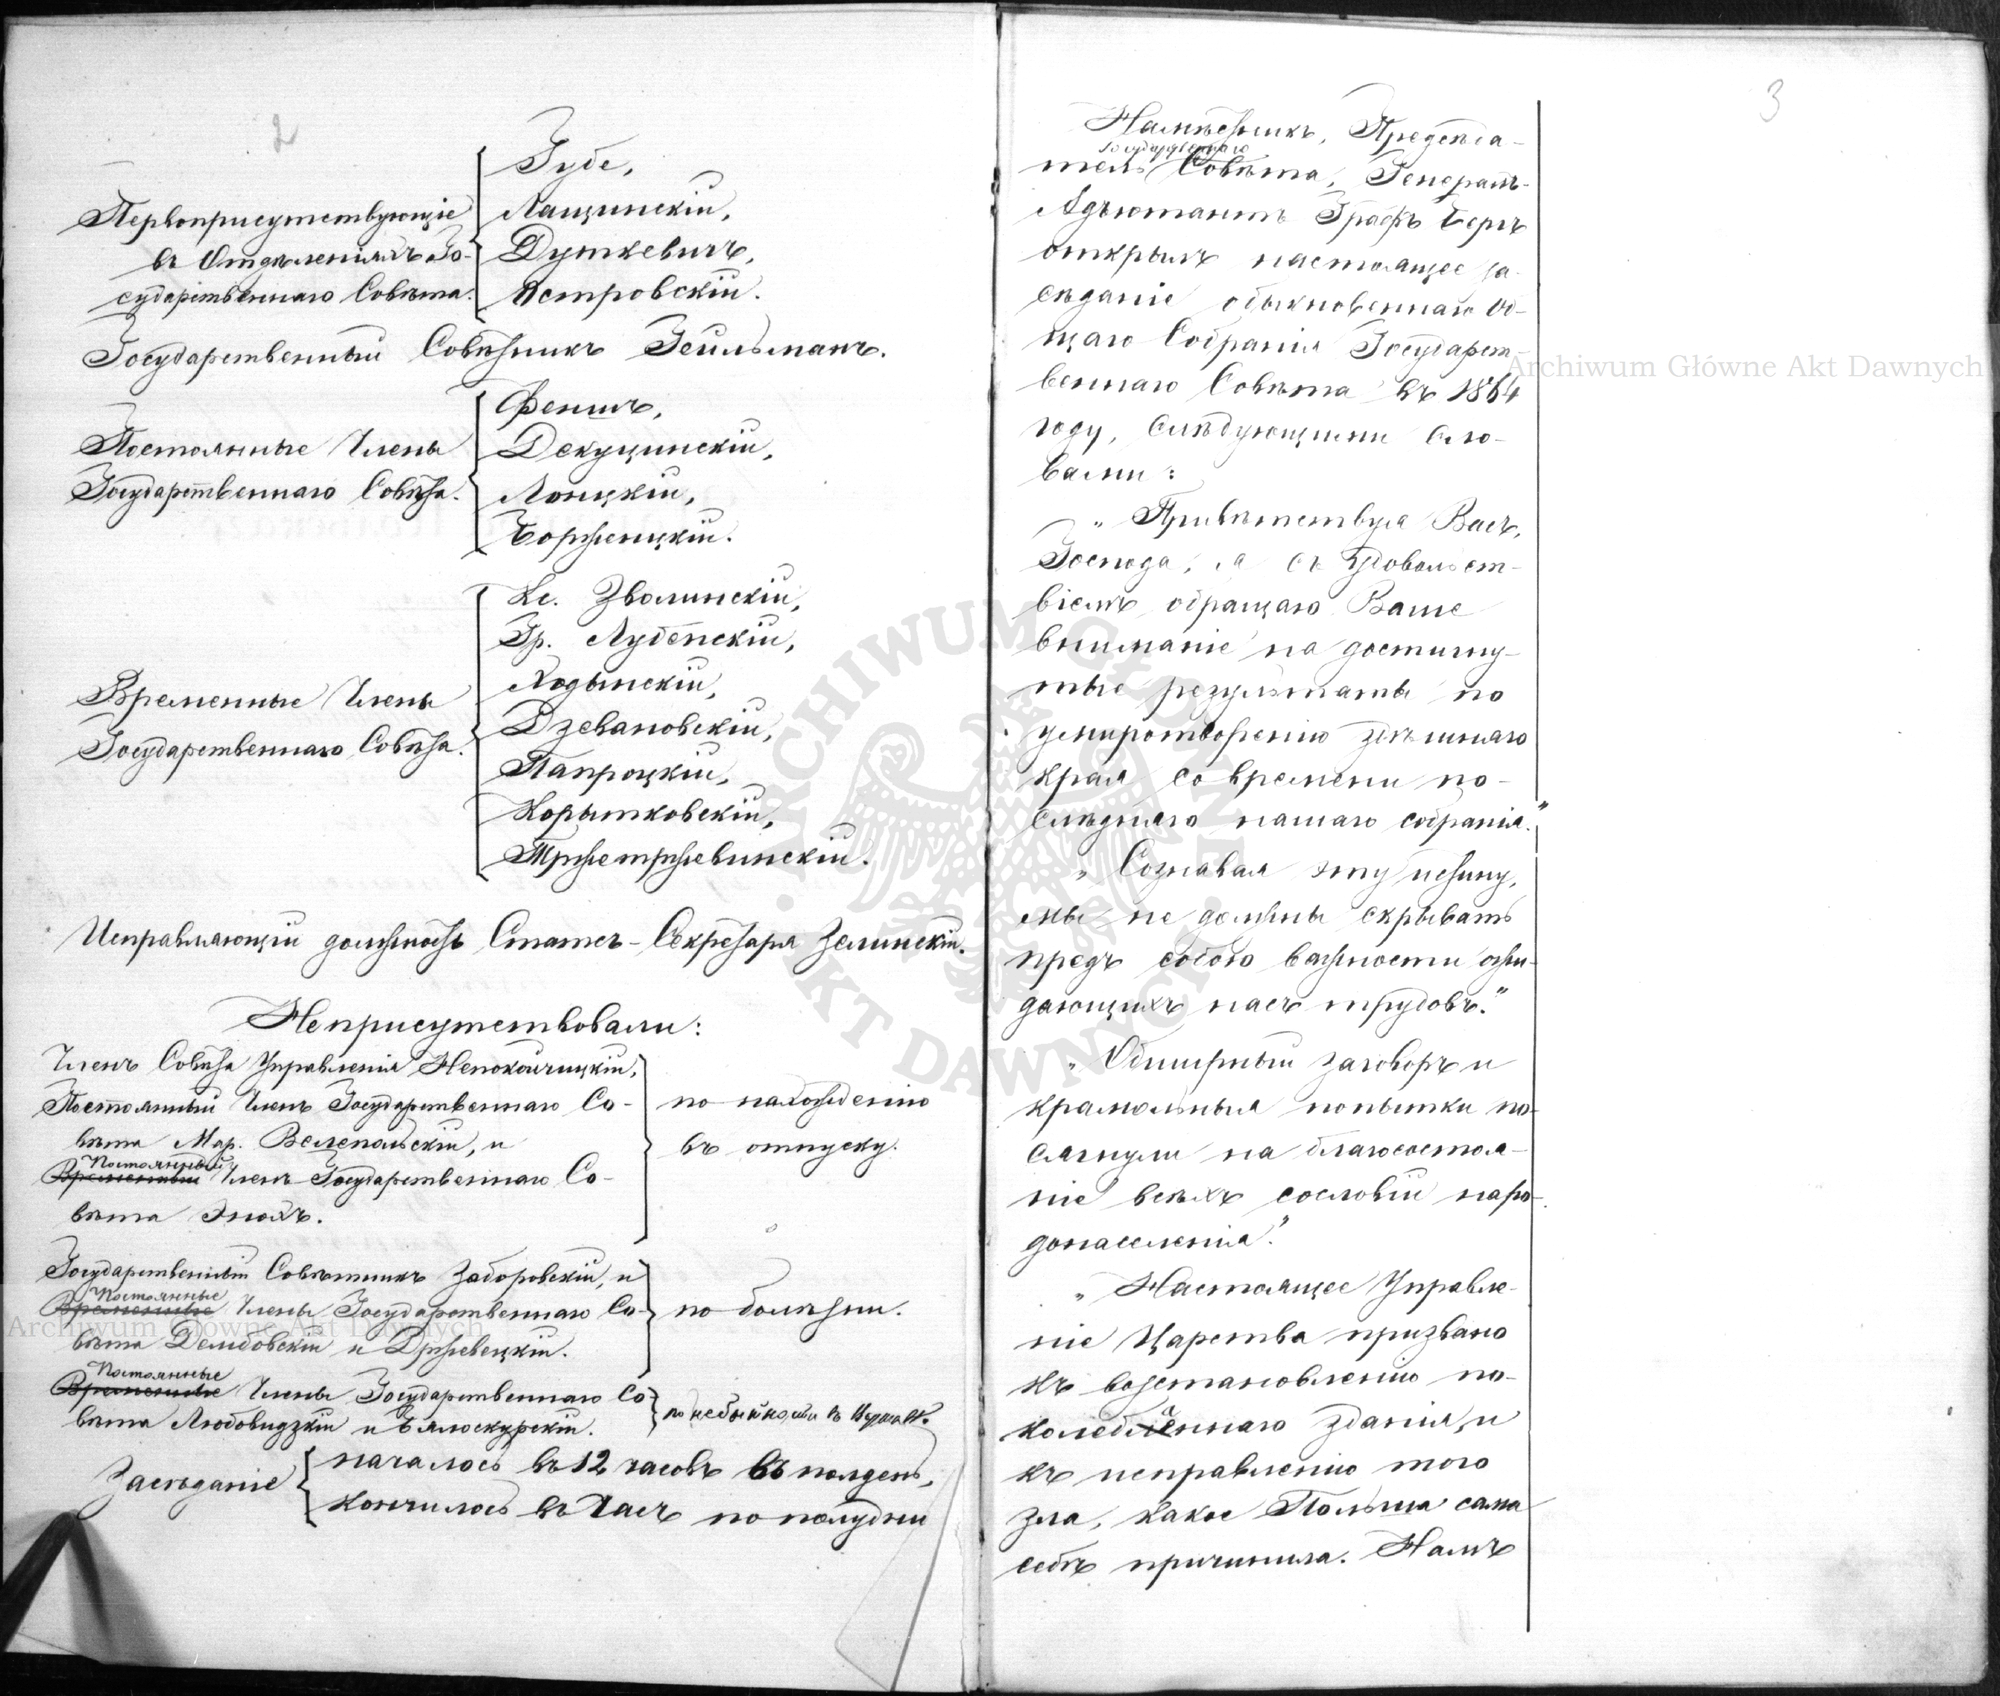 2
Первоприсутствующіе
въ Отдѣленіяхъ Го-
сударственнаго Совѣта.
Губе,
Лащинскій,
Дуткевичъ,
Островскій.
Государственный Совѣтникъ Гейльманъ.
Постоянные Члены
Государственнаго Совѣта.
Феншъ,
Декуцинскій,
Лонцкій,
Боржецкій.
Временные Члены
Государственнаго Совѣта.
Кс. Зволинскій,
Гр. Лубенскій,
Ходынскій,
Дзевановскій,
Папроцкій,
Корытковскій,
Тржетржевинскій.
Исправляющій должность Статсъ-Секретаря Зелинскій.
Неприсутствовали:
Членъ Совѣта Управленія Непокойчицкій,
Постоянный Членъ Государственнаго Со-
вѣта Мар. Велепольскій, и
Постоянный
Временный Членъ Государственнаго Со-
вѣта Энохъ.
по нахожденію
въ отпуску.
Государственный Совѣтникъ Заборовскій, и
Постоянные
Временные Члены Государственнаго Со-
вѣта Дембовскій и Држевецкій.
по болѣзни.
Постоянные
Временные Члены Государственнаго Со-
вѣта Любовидзкій и Бялоскурскій.
по небытности въ Варшавѣ.
Засѣданіе
началось въ 12 часовъ въ полдень,
кончилось въ 1 часъ по полудни
3
Намѣстникъ, Предсѣда-
Государственнаго
тель Совѣта, Генералъ-
Адъютантъ Графъ Бергъ
открылъ настоящее за-
сѣданіе обыкновеннаго Об-
щаго Собранія Государст-
веннаго Совѣта въ 1864
году, слѣдующими сло-
вами:
„Привѣтствуя Васъ,
Господа, я съ удовольст-
віемъ обращаю Ваше
вниманіе на достигну-
тые результаты по
умиротворенію здѣшняго
края со времени по-
слѣдняго нашаго собранія."
„Сознавая эту истину,
мы не должны скрывать
предъ собою важности ожи-
дающихъ насъ трудовъ."
„Обширный заговоръ и
крамольныя попытки по-
сягнули на благосостоя-
ніе всѣхъ сословій наро-
донаселенія."
„Настоящее Управле-
ніе Царства призвано
къ возстановленію по-
колебленнаго зданія, и
къ исправленію того
зла, какое Польша сама
себѣ причинила. Намъ
Archiwum Główne Akt Dawnych
Archiwum Główne Akt Dawnych
ARCHIWUM GŁÓWNE AKT DAWNYCH